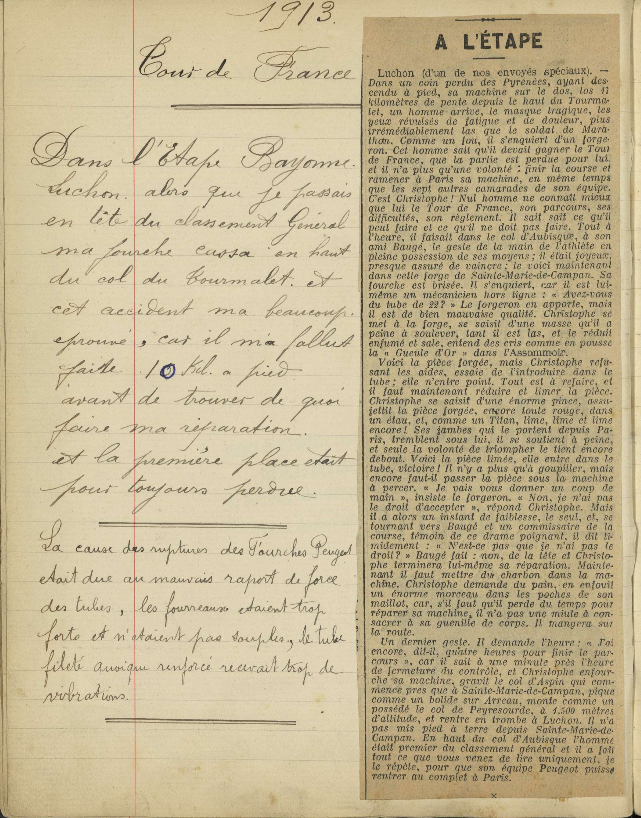 1913.
Tour de France
Dans l'Etape Bayonne.
Luchon. alors que je passais
en tête du classement Général
ma fourche cassa en haut
du col du Tourmalet. et
cet accident m'a beaucoup.
eprouvé, car il m'a fallut
faite 10 Kil. a pied
avant de trouver de quoi
faire ma réparation.
et la première place était
pour toujours perdue.
La cause des ruptures des Fourches Peugeot
etait due au mauvais raport de force
des tubes, les fourreaux etaient trop
forts et n'etaient pas souples, le tube
fileté quoique renforcé recevait trop de
vibrations.
A L'ÉTAPE
Luchon (d'un de nos envoyés spéciaux). —
Dans un coin perdu des Pyrénées, ayant des-
cendu à pied, sa machine sur le dos, les 11
kilomètres de pente depuis le haut du Tourma-
let, un homme arrive, le masque tragique, les
yeux révulsés de fatigue et de douleur, plus
irrémédiablement las que le soldat de Mara-
thon. Comme un fou, il s'enquiert d'un forge-
ron. Cet homme sait qu'il devait gagner le Tour
de France, que la partie est perdue pour lui
et il n'a plus qu'une volonté : finir la course et
ramener à Paris sa machine, en même temps
que les sept autres camarades de son équipe.
C'est Christophe ! Nul homme ne connaît mieux
que lui le Tour de France, son parcours, ses
difficultés, son règlement. Il sait sait ce qu'il
peut faire et ce qu'il ne doit pas faire. Tout à
l'heure, il faisait dans le col d'Aubisque, à son
ami Baugé, le geste de la main de l'athlète en
pleine possession de ses moyens ; il était joyeux,
presque assuré de vaincre ; le voici maintenant
dans cette forge de Sainte-Marie-de-Campan. Sa
fourche est brisée. Il s'enquiert, car il est lui-
même un mécanicien hors ligne : « Avez-vous
du tube de 22 ? » Le forgeron en apporte, mais
il est de bien mauvaise qualité. Christophe se
met à la forge, se saisit d'une masse qu'il a
peine à soulever, tant il est las, et le réduit
enfumé et sale, entend des cris comme en pousse
la « Gueule d'Or » dans l'Assommoir.
Voici la pièce forgée, mais Christophe refu-
sant les aides, essaie de l'introduire dans le
tube ; elle n'entre point. Tout est à refaire, et
il faut maintenant réduire et limer la pièce.
Christophe se saisit d'une énorme pince, assu-
jettit la pièce forgée, encore toute rouge, dans
un étau, et, comme un Titan, lime, lime et lime
encore ! Ses jambes qui le portent depuis Pa-
ris, tremblent sous lui, il se soutient à peine,
et seule la volonté de triompher le tient encore
debout. Voici la pièce limée, elle entre dans le
tube, victoire ! Il n'y a plus qu'à goupiller, mais
encore faut-il passer la pièce sous la machine
à percer. « Je vais vous donner un coup de
main », insiste le forgeron. « Non, je n'ai pas
le droit d'accepter », répond Christophe. Mais
il a alors un instant de faiblesse, le seul, et, se
tournant vers Baugé et un commissaire de la
course, témoin de ce drame poignant, il dit ti-
midement : « N'est-ce pas que je n'ai pas le
droit ? » Baugé fait : non, de la tête et Christo-
phe terminera lui-même sa réparation. Mainte-
nant il faut mettre du charbon dans la ma-
chine. Christophe demande du pain, en enfouit
un énorme morceau dans les poches de son
maillot, car, s'il faut qu'il perde du temps pour
réparer sa machine, il n'a pas une miute à con-
sacrer à sa guenille de corps. Il mangera sur
la route.
Un dernier geste. Il demande l'heure : « J'ai
encore, dit-il, quatre heures pour finir le par-
cours », car il sait à une minute près l'heure
de fermeture du contrôle, et Christophe enfour-
che sa machine, gravit le col d'Aspin qui com-
mence pres que à Sainte-Marie-de-Campan, pique
comme un bolide sur Arreau, monde comme un
possédé le col de Peyresourde, à 1.500 mètres
d'altitude, et rentre en trombe à Luchon. Il n'a
pas mis pied à terre depuis Sainte-Marie-de-
Campan. En haut du col d'Aubisque l'homme
était premier du classement général et il a fait
tout ce que vous venez de lire uniquement, je
le répète, pour que son équipe Peugeot puisse
rentrer au complet à Paris.